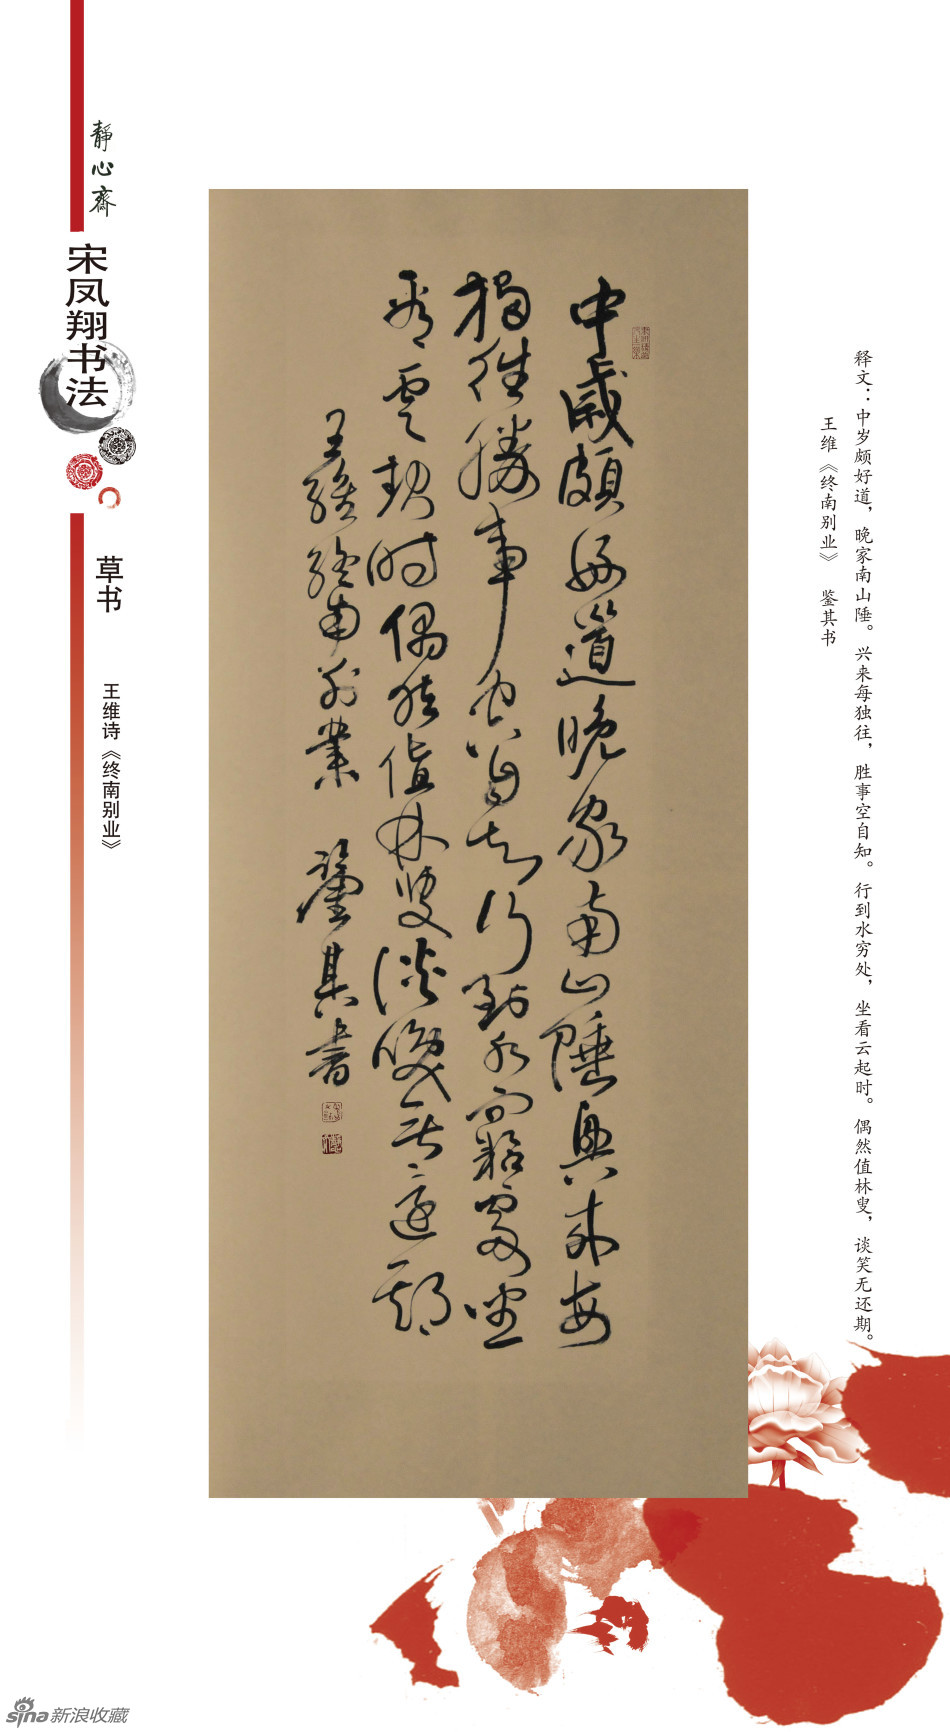 靜心齋
宋凤翔书法
草书
王维诗《终南别业》
中歲頗好道晚家南山陲興來每
獨往勝事空自知行到水窮處坐
看雲起時偶然值林叟談笑無還期
王維終南別業 鑒其書
释文：中岁颇好道，晚家南山陲。兴来每独往，胜事空自知。行到水穷处，坐看云起时。偶然值林叟，谈笑无还期。
王维《终南别业》 鉴其书
sina新浪收藏